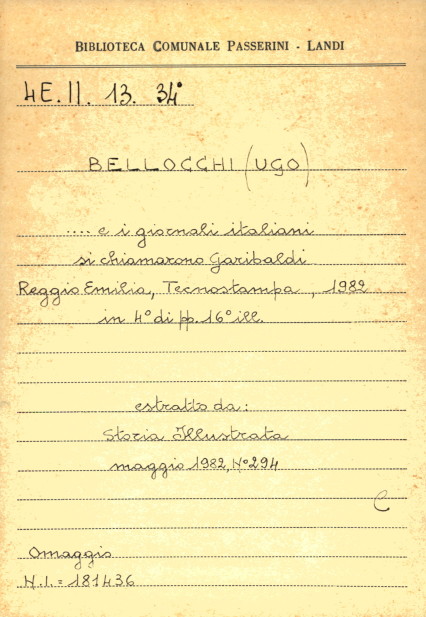 BIBLIOTECA COMUNALE PASSERINI - LANDI
4E. II. 13. 34°
BELLOCCHI (UGO)
.... e i giornali italiani
si chiamarono Garibaldi
Reggio Emilia, Tecnostampa, 1982
in 4° di pp. 16 ° ill.
estratto da:
Storia Illustrata
maggio 1982, N° 294
C
Omaggio
N.I. = 181436